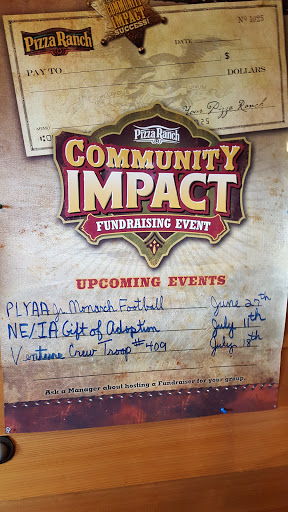 COMMUNITY
IMPACT
SUCCESS!
Pizza Ranch
Nº 1025
DATE
PAY TO
$
DOLLARS
Your Pizza Ranch
Pizza Ranch
COMMUNITY
IMPACT
FUNDRAISING EVENT
UPCOMING EVENTS
PLYAA Jr. Monarch Football June 27th
NE/IA Gift of Adoption July 11th
Venture Crew Troop #409 July 18th
Ask a Manager about hosting a Fundraiser for your group.